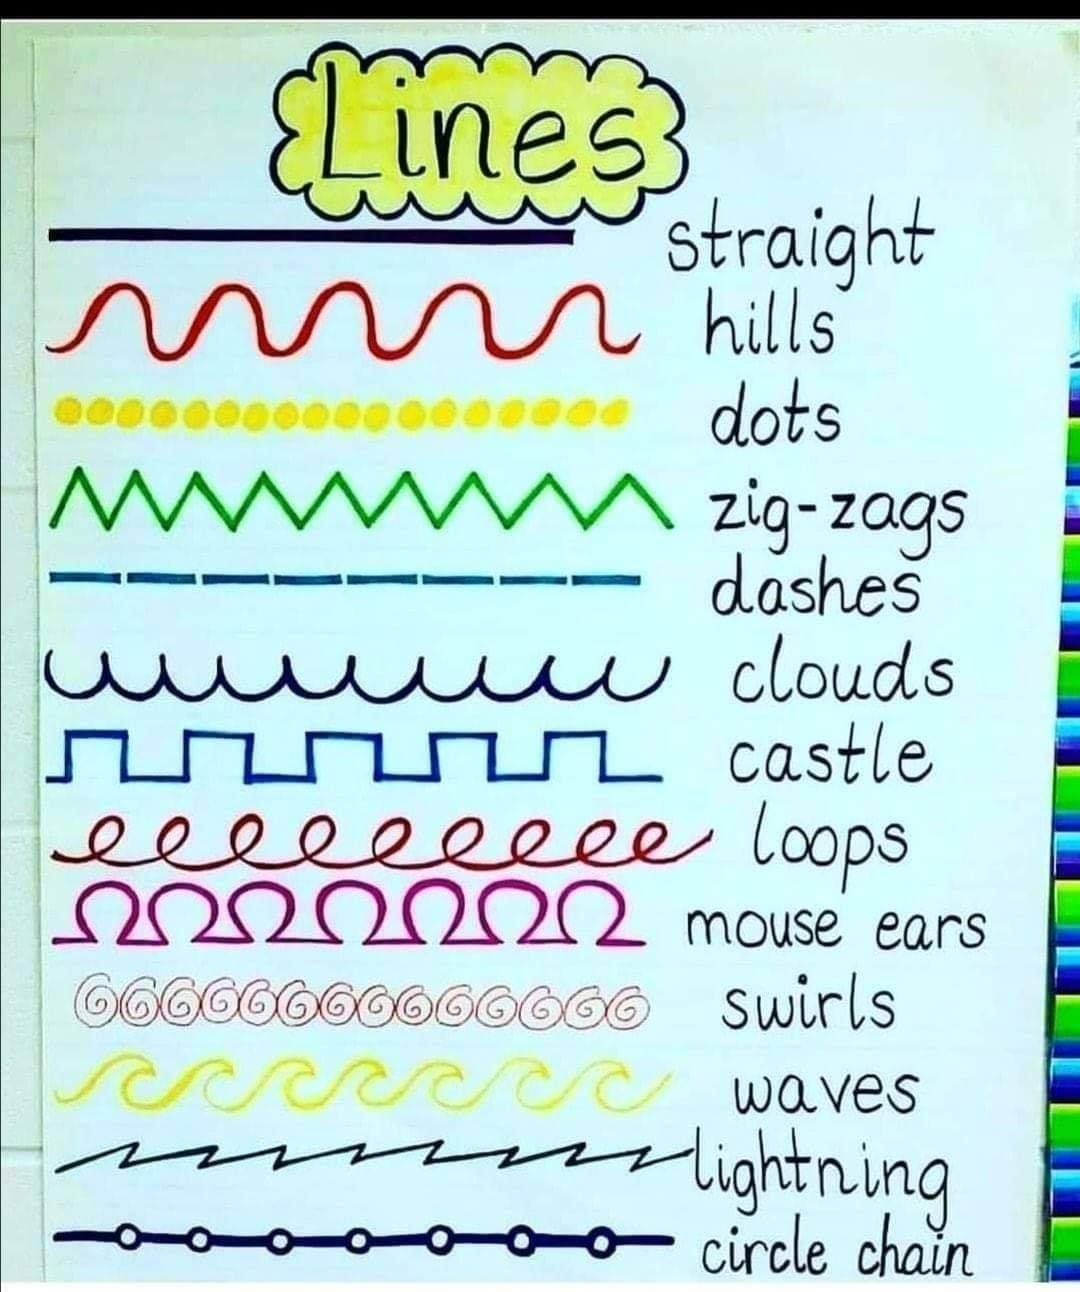 Lines
straight
hills
dots
zig-zags
dashes
clouds
castle
loops
mouse ears
swirls
waves
lightning
circle chain